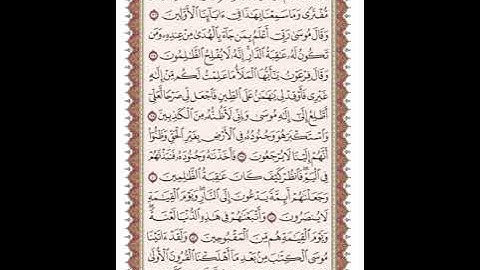 مُّفْتَرًى وَمَا سَمِعْنَا بِهَٰذَا فِىٓ ءَابَآئِنَا ٱلْأَوَّلِينَ ٣٦
وَقَالَ مُوسَىٰ رَبِّىٓ أَعْلَمُ بِمَن جَآءَ بِٱلْهُدَىٰ مِنْ عِندِهِۦ وَمَن
تَكُونُ لَهُۥ عَٰقِبَةُ ٱلدَّارِ إِنَّهُۥ لَا يُفْلِحُ ٱلظَّٰلِمُونَ ٣٧
وَقَالَ فِرْعَوْنُ يَٰٓأَيُّهَا ٱلْمَلَأُ مَا عَلِمْتُ لَكُم مِّنْ إِلَٰهٍ
غَيْرِى فَأَوْقِدْ لِى يَٰهَٰمَٰنُ عَلَى ٱلطِّينِ فَٱجْعَل لِّى صَرْحًا لَّعَلِّىٓ
أَطَّلِعُ إِلَىٰٓ إِلَٰهِ مُوسَىٰ وَإِنِّى لَأَظُنُّهُۥ مِنَ ٱلْكَٰذِبِينَ ٣٨
وَٱسْتَكْبَرَ هُوَ وَجُنُودُهُۥ فِى ٱلْأَرْضِ بِغَيْرِ ٱلْحَقِّ وَظَنُّوٓا۟
أَنَّهُمْ إِلَيْنَا لَا يُرْجَعُونَ ٣٩ فَأَخَذْنَٰهُ وَجُنُودَهُۥ فَنَبَذْنَٰهُمْ
فِى ٱلْيَمِّ فَٱنظُرْ كَيْفَ كَانَ عَٰقِبَةُ ٱلظَّٰلِمِينَ ٤٠
وَجَعَلْنَٰهُمْ أَئِمَّةً يَدْعُونَ إِلَى ٱلنَّارِ وَيَوْمَ ٱلْقِيَٰمَةِ
لَا يُنصَرُونَ ٤١ وَأَتْبَعْنَٰهُمْ فِى هَٰذِهِ ٱلدُّنْيَا لَعْنَةً
وَيَوْمَ ٱلْقِيَٰمَةِ هُم مِّنَ ٱلْمَقْبُوحِينَ ٤٢ وَلَقَدْ ءَاتَيْنَا
مُوسَى ٱلْكِتَٰبَ مِنۢ بَعْدِ مَآ أَهْلَكْنَا ٱلْقُرُونَ ٱلْأُولَىٰ